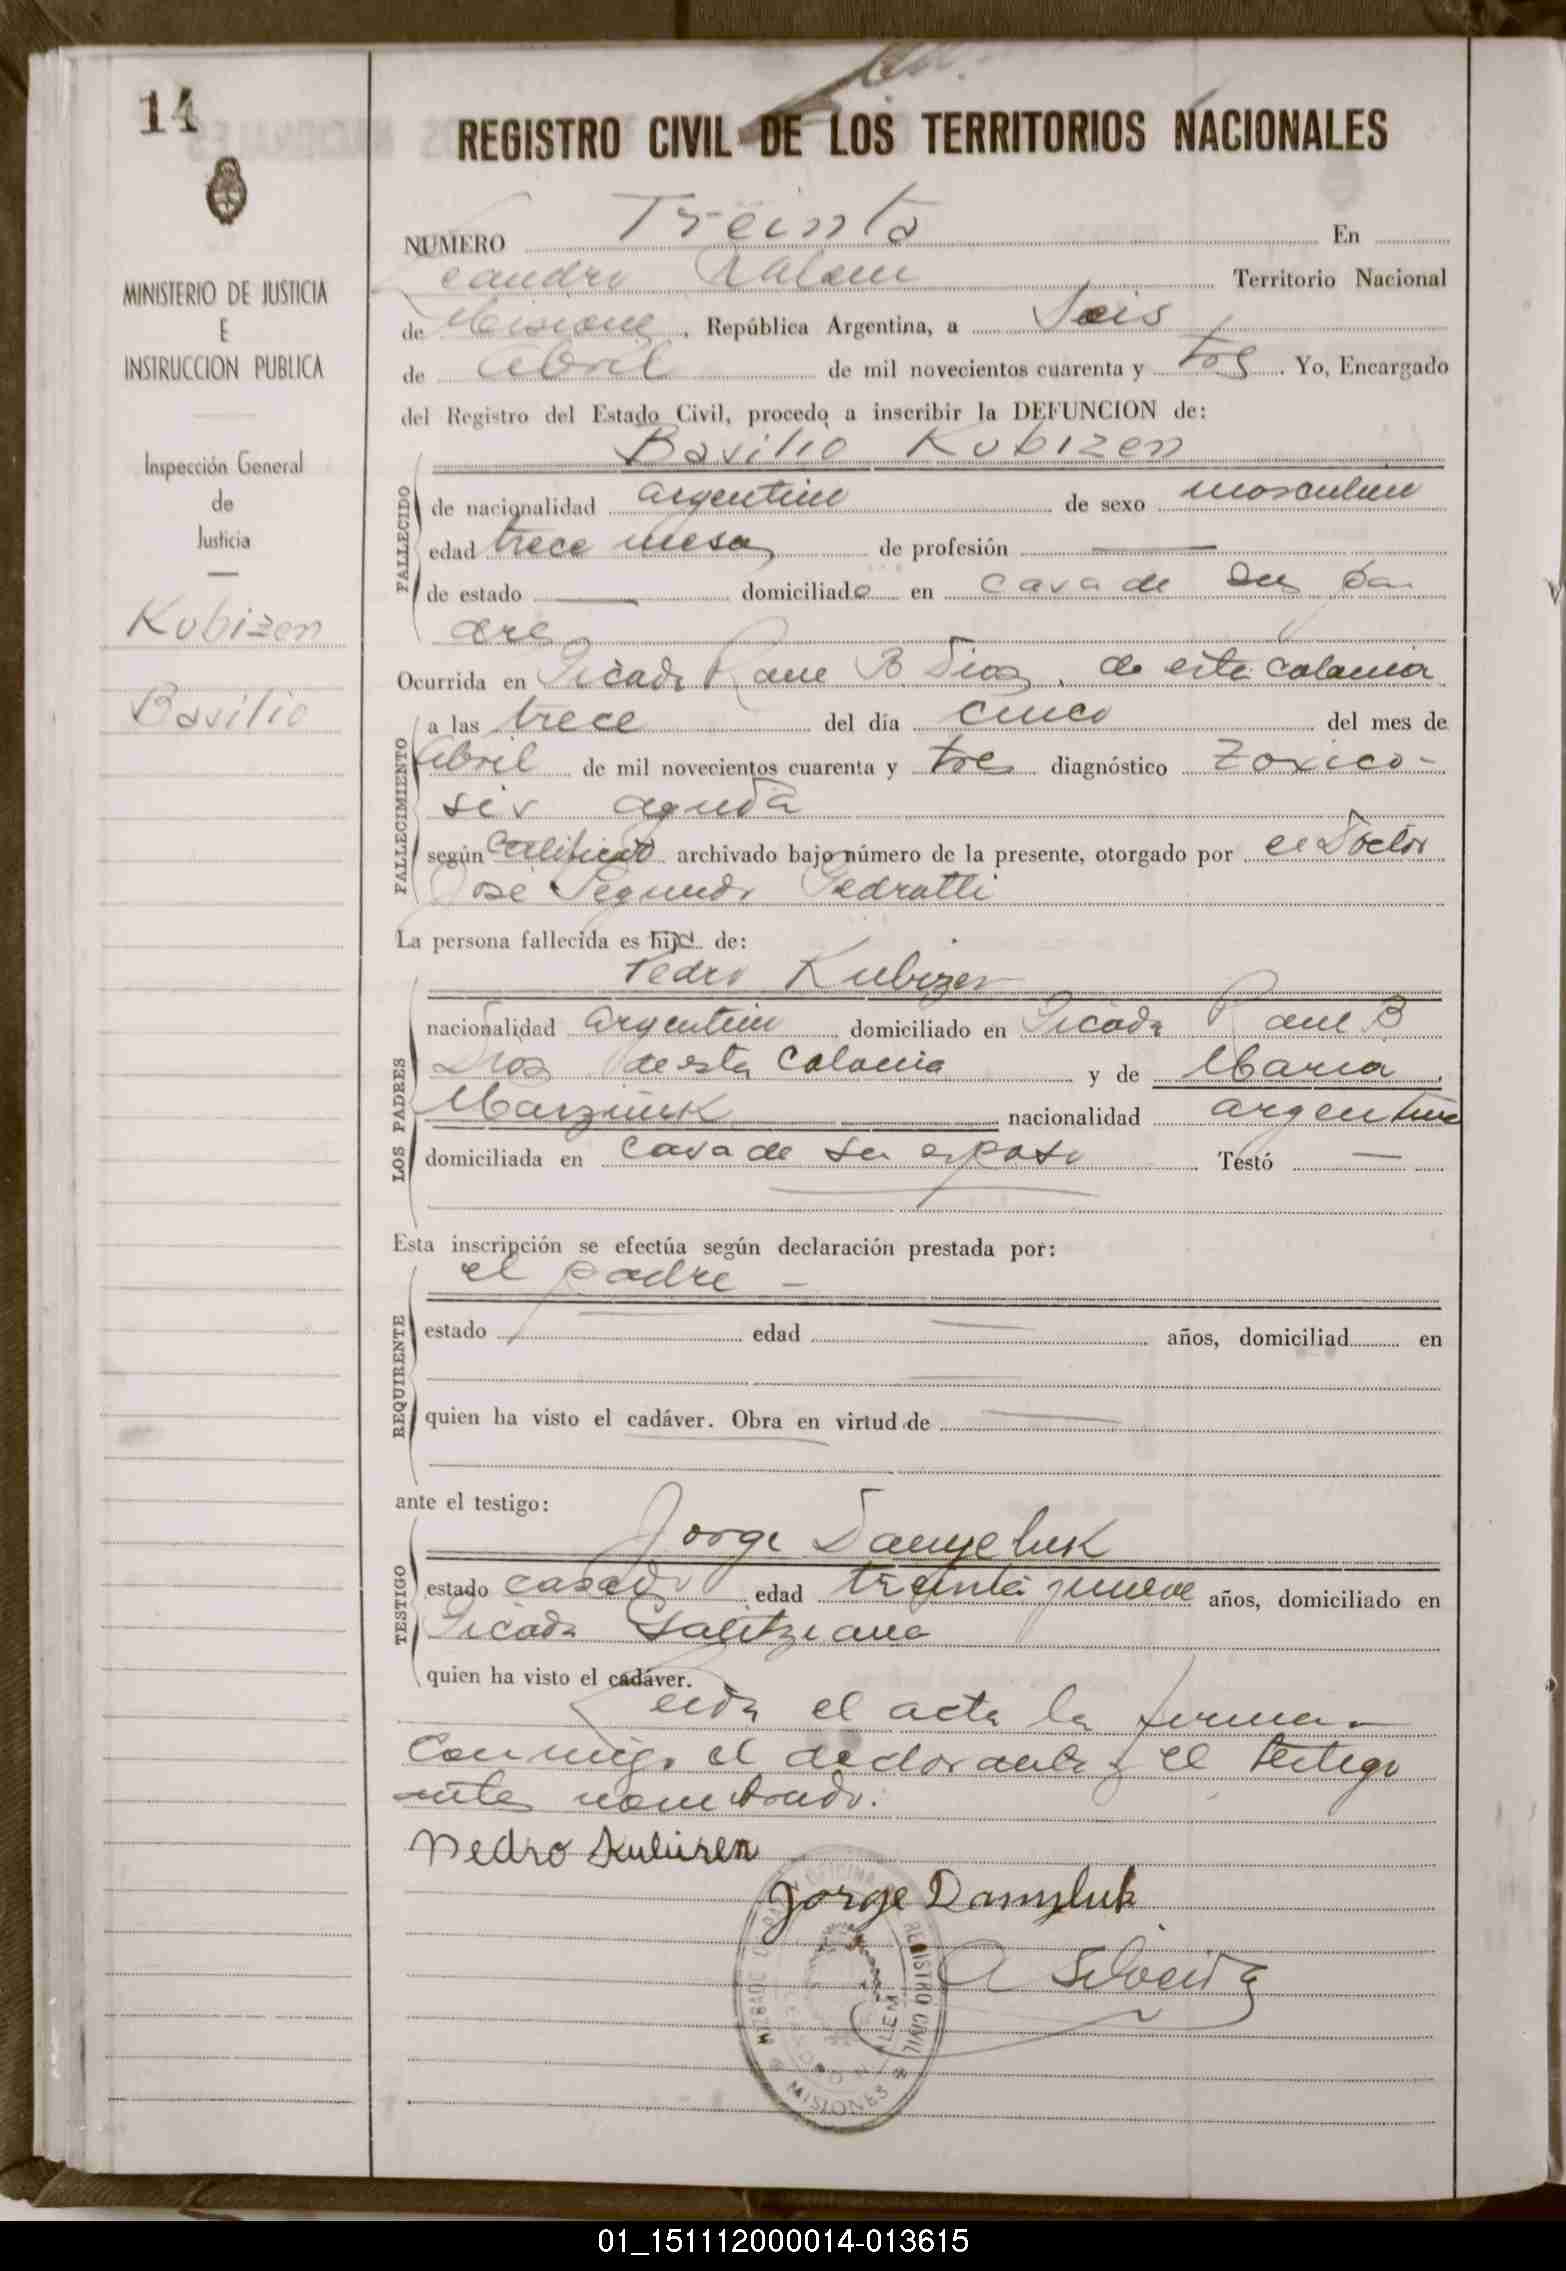 14
REGISTRO CIVIL DE LOS TERRITORIOS NACIONALES
MINISTERIO DE JUSTICIA
E
INSTRUCCION PUBLICA
Inspección General
de
Justicia
Kubizen
Basilio
NUMERO Treinta En
Leandro Alem Territorio Nacional
de Misiones, República Argentina, a Seis
de Abril de mil novecientos cuarenta y tres. Yo, Encargado
del Registro del Estado Civil, procedo a inscribir la DEFUNCION de:
Basilio Kubizen
FALLECIDO
de nacionalidad argentino de sexo masculino
edad trece meses de profesión —
de estado — domiciliado en casa de sus pa
dres
Ocurrida en Picada de esta colonia
FALLECIMIENTO
a las trece del día cinco del mes de
Abril de mil novecientos cuarenta y tres diagnóstico Toxico-
sis aguda
según certificado archivado bajo número de la presente, otorgado por el Doctor
José Segundo Pedrotti
La persona fallecida es hijo de:
Pedro Kubizen
LOS PADRES
nacionalidad argentino domiciliado en Picada
de esta Colonia y de Maria
nacionalidad argentina
domiciliada en casa de su esposo Testó —
Esta inscripción se efectúa según declaración prestada por:
el padre —
REQUIRENTE
estado edad — años, domiciliad en
quien ha visto el cadáver. Obra en virtud de —
ante el testigo:
Jorge Danyeluk
TESTIGO
estado casado edad treinta y nueve años, domiciliado en
Picada Galitziana
quien ha visto el cadáver.
Leida el acta la firman
conmigo el declarante y el testigo
antes nombrado.
Pedro Kubizen
Jorge Danyluk
REGISTRO CIVIL
MISIONES
01_151112000014-013615